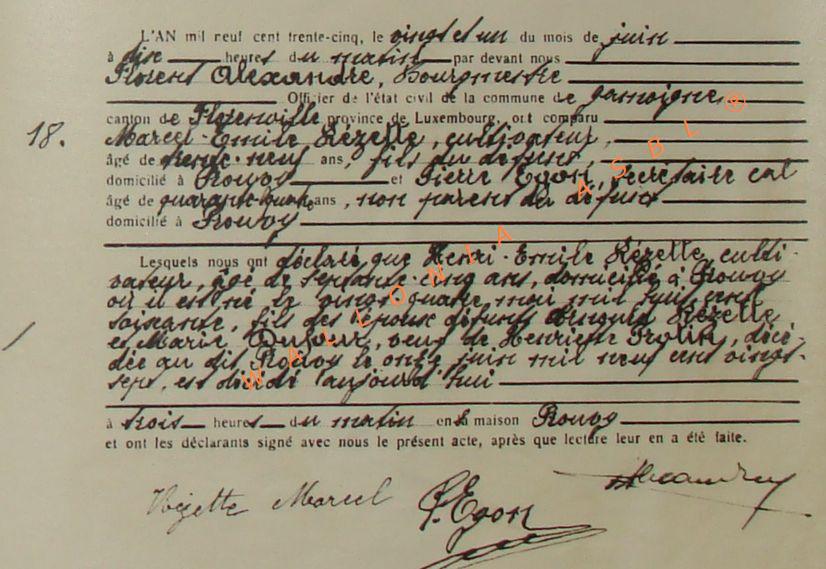 L'AN mil neuf cent trente-cinq, le vingt et un du mois de juin
à dix heures du matin par devant nous
Florent Alexandre, Bourgmestre
Officier de l'état civil de la commune de Jamoigne
18. canton de Florenville province de Luxembourg, ont comparu
Marcel-Emile Rézette, cultivateur,
âgé de trente-neuf ans, fils du défunt,
domicilié à Prouvy et Pierre Egon, secrétaire cal
âgé de quarante-quatre ans, non parent du défunt
domicilié à Prouvy
Lesquels nous ont déclaré que Henri-Emile Rézette, culti-
vateur, âgé de septante-cinq ans, domicilié à Prouvy
où il est né le vingt-quatre mai mil huit cent
soixante, fils des époux défunts Arnould Rézette
et Marie Dufour, veuf de Henriette, décé-
dée au dit Prouvy le onze juin mil neuf cent vingt-
sept, est décédé aujourd'hui
à trois heures du matin en sa maison Prouvy
et ont les déclarants signé avec nous le présent acte, après que lecture leur en a été faite.
Rézette Marcel P. Egon Alexandre
WALLONIA ASBL ®